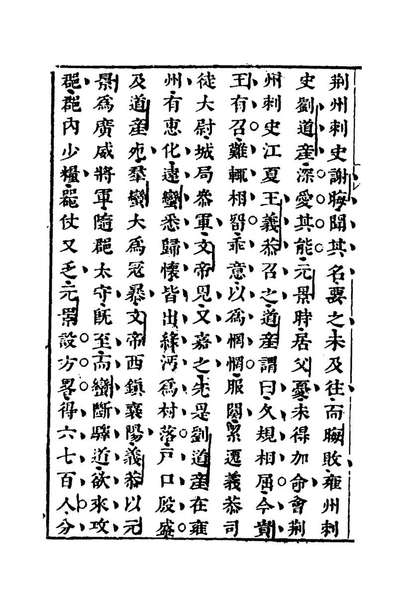 荆州刺史謝晦聞其名要之未及往而晦敗雍州刺
史劉道産深愛其能元景時居父憂未得加命會荆
州刺史江夏王義恭召之道産謂曰久規相屈今貴
王有召難輙相留乖意以爲惘惘服闋累遷義恭司
徒大尉城局叅軍文帝見又嘉之先是劉道産在雍
州有惠化遠蠻悉歸懷皆出緣沔爲村落戸口殷盛
及道産死羣蠻大爲寇暴文帝西鎮襄陽義恭以元
景爲廣威將軍隨郡太守既至而蠻斷驛道欲來攻
郡郡内少糧器仗又乏元景設方畧得六七百人分